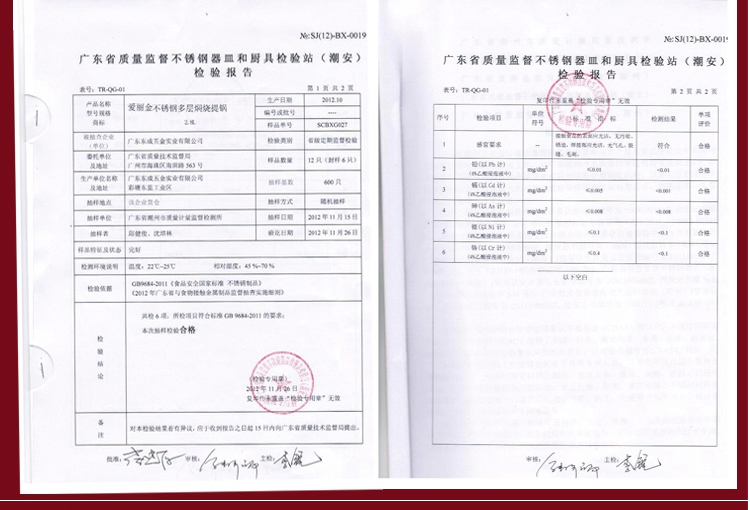 №:SJ(12)-BX-0019
广东省质量监督不锈钢器皿和厨具检验站（潮安）
检 验 报 告
表号：TR-QG-01
第 1 页 共 2 页
产品名称
型号规格
商标
爱丽金不锈钢多层焖烧提锅
生产日期
2012.10
编号或批号
----
样品单号
SCBXG027
被抽查企业
（单位）
广东东成五金实业有限公司
检验类别
省级定期监督检验
委托单位
及地址
广东省质量技术监督局
广州市海珠区南田路 563 号
样品数量
12 只（封样 6 只）
生产单位名称
及地址
广东东成五金实业有限公司
彩塘东里工业区
抽样基数
600 只
抽样地点
该企业货仓
抽样方式
随机抽样
抽样单位
广东省潮州市质量计量监督检测所
抽样日期
2012 年 11 月 15 日
抽样者
邱健俊、沈烘林
验讫日期
2012 年 11 月 26 日
样品特征及状态
完好
检测环境说明
温度：22℃~25℃
相对湿度：45 %~70 %
检验依据
GB9684-2011《食品安全国家标准 不锈钢制品》
《2012 年广东省与食物接触金属制品监督抽查实施细则》
检
验
结
论
共检 6 项，所检项目符合标准 GB 9684-2011 的要求；
本次抽样检验合格
（检验专用章）
2012 年 11 月 26 日
复印件未重盖“检验专用章”无效
备
注
对本检验结果若有异议，应于收到报告之日起 15 日内向广东省质量技术监督局提出。
批准：
审核：
主检：
№:SJ(12)-BX-0019
广东省质量监督不锈钢器皿和厨具检验站（潮安）
检 验 报 告
表号：TR-QG-01
第 2 页 共 2 页
复印件未重盖“检验专用章”无效
序号
检验项目
单位
符号
标 准 指 标
检测结果
单项
评价
1
感官要求
--
符合
合格
2
铅（以 Pb 计）
（4%乙酸浸泡液中）
mg/dm²
≤0.01
<0.01
合格
3
镉（以 Cd 计）
（4%乙酸浸泡液中）
mg/dm²
≤0.005
<0.001
合格
4
砷（以 As 计）
（4%乙酸浸泡液中）
mg/dm²
≤0.008
<0.008
合格
5
镍（以 Ni 计）
（4%乙酸浸泡液中）
mg/dm²
≤0.1
<0.1
合格
6
铬（以 Cr 计）
（4%乙酸浸泡液中）
mg/dm²
≤0.4
<0.1
合格
以下空白
审核：
主检：